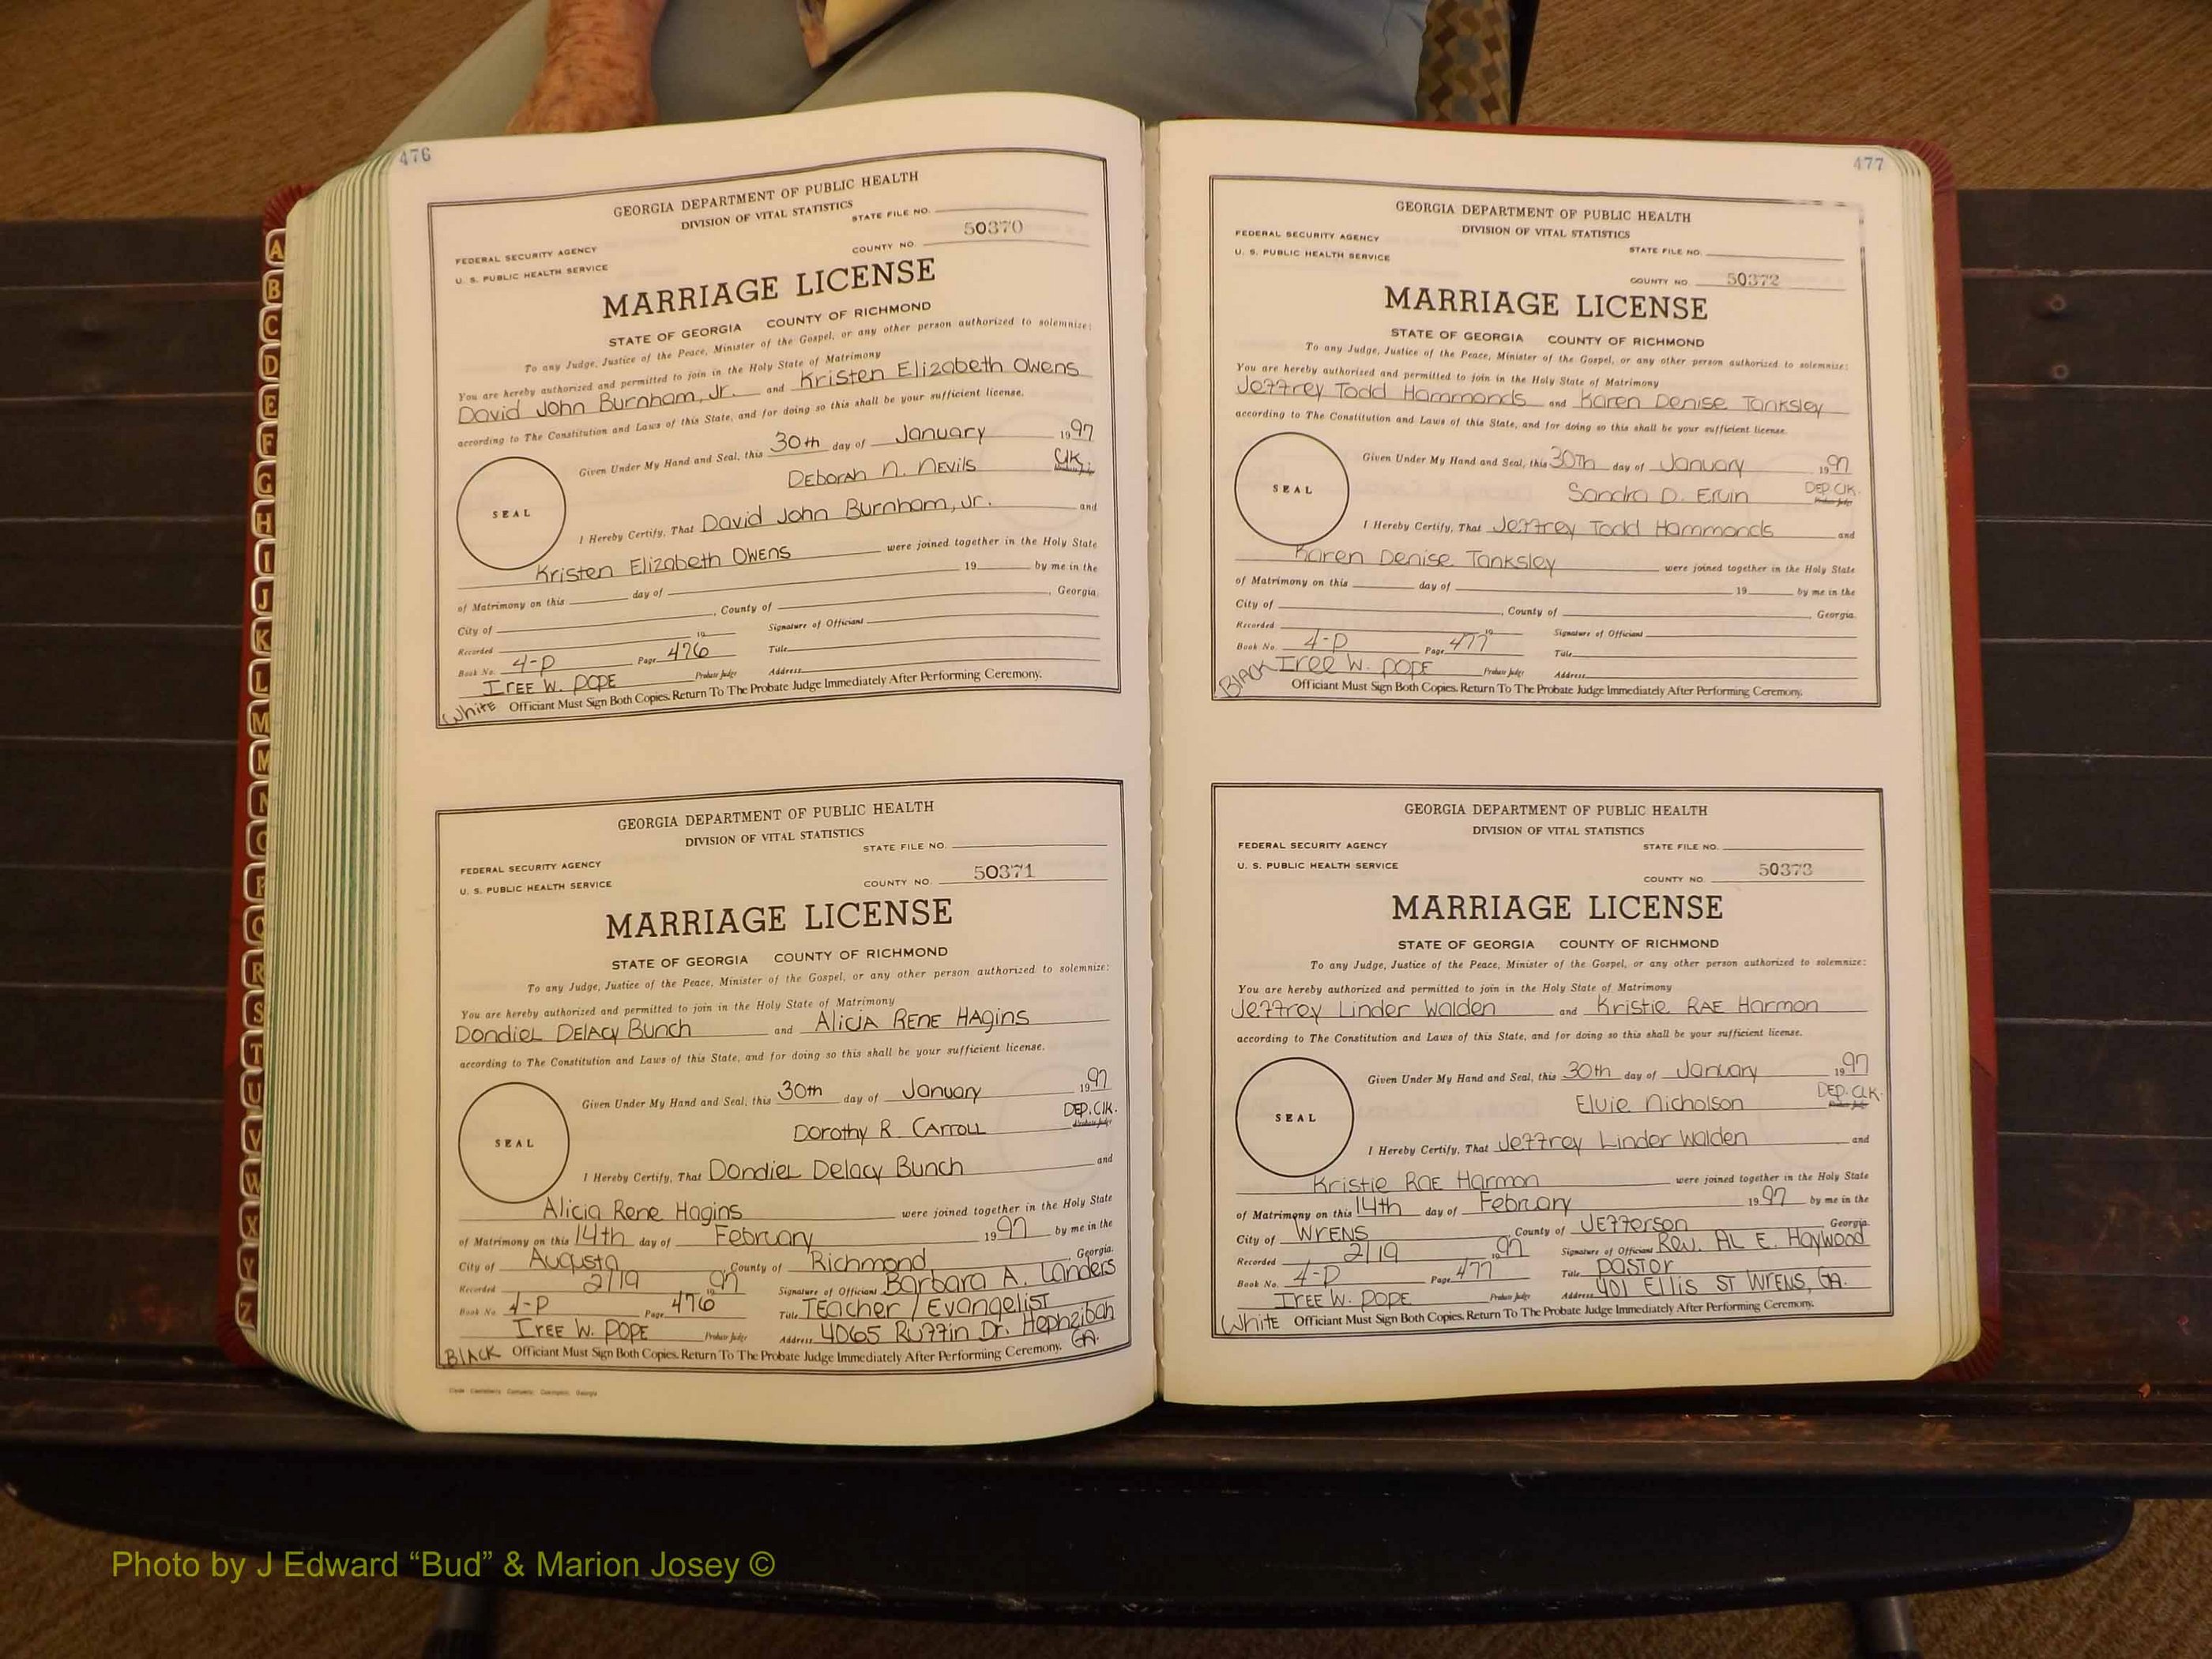 476
GEORGIA DEPARTMENT OF PUBLIC HEALTH
DIVISION OF VITAL STATISTICS
STATE FILE NO.
FEDERAL SECURITY AGENCY
U. S. PUBLIC HEALTH SERVICE
COUNTY NO. 50370
MARRIAGE LICENSE
STATE OF GEORGIA COUNTY OF RICHMOND
To any Judge, Justice of the Peace, Minister of the Gospel, or any other person authorized to solemnize:
You are hereby authorized and permitted to join in the Holy State of Matrimony
David John Burnham, Jr. and Kristen Elizabeth Owens
according to The Constitution and Laws of this State, and for doing so this shall be your sufficient license.
Given Under My Hand and Seal, this 30th day of January 1997
Deborah N. Nevils Clk.
SEAL
I Hereby Certify, That David John Burnham, Jr. and
Kristen Elizabeth Owens were joined together in the Holy State
of Matrimony on this day of 19 by me in the
City of , County of , Georgia.
Recorded 19 Signature of Officiant
Book No. 4-P Page 476 Title
Iree W. Pope Probate Judge Address
White Officiant Must Sign Both Copies. Return To The Probate Judge Immediately After Performing Ceremony.
GEORGIA DEPARTMENT OF PUBLIC HEALTH
DIVISION OF VITAL STATISTICS
STATE FILE NO.
FEDERAL SECURITY AGENCY
U. S. PUBLIC HEALTH SERVICE
COUNTY NO. 50371
MARRIAGE LICENSE
STATE OF GEORGIA COUNTY OF RICHMOND
To any Judge, Justice of the Peace, Minister of the Gospel, or any other person authorized to solemnize:
You are hereby authorized and permitted to join in the Holy State of Matrimony
Dondiel Delacy Bunch and Alicia Rene Hagins
according to The Constitution and Laws of this State, and for doing so this shall be your sufficient license.
Given Under My Hand and Seal, this 30th day of January 1997
Dorothy R. Carroll Dep. Clk.
Probate Judge
SEAL
I Hereby Certify, That Dondiel Delacy Bunch and
Alicia Rene Hagins were joined together in the Holy State
of Matrimony on this 14th day of February 1997 by me in the
City of Augusta, County of Richmond, Georgia.
Recorded 2/19 1997 Signature of Officiant Barbara A. Landers
Book No. 4-P Page 476 Title Teacher / Evangelist
Iree W. Pope Probate Judge Address 4065 Ruffin Dr. Hephzibah GA.
Black Officiant Must Sign Both Copies. Return To The Probate Judge Immediately After Performing Ceremony.
477
GEORGIA DEPARTMENT OF PUBLIC HEALTH
DIVISION OF VITAL STATISTICS
FEDERAL SECURITY AGENCY
STATE FILE NO.
U. S. PUBLIC HEALTH SERVICE
COUNTY NO. 50372
MARRIAGE LICENSE
STATE OF GEORGIA COUNTY OF RICHMOND
To any Judge, Justice of the Peace, Minister of the Gospel, or any other person authorized to solemnize:
You are hereby authorized and permitted to join in the Holy State of Matrimony
Jeffrey Todd Hammonds and Karen Denise Tanksley
according to The Constitution and Laws of this State, and for doing so this shall be your sufficient license.
Given Under My Hand and Seal, this 30Th day of January 1997
Sandra D. Ervin Dep. Clk.
Probate Judge
SEAL
I Hereby Certify, That Jeffrey Todd Hammonds and
Karen Denise Tanksley were joined together in the Holy State
of Matrimony on this day of 19 by me in the
City of , County of , Georgia.
Recorded 19 Signature of Officiant
Book No. 4-P Page 477 Title
Iree W. Pope Probate Judge Address
Black Officiant Must Sign Both Copies. Return To The Probate Judge Immediately After Performing Ceremony.
GEORGIA DEPARTMENT OF PUBLIC HEALTH
DIVISION OF VITAL STATISTICS
FEDERAL SECURITY AGENCY
STATE FILE NO.
U. S. PUBLIC HEALTH SERVICE
COUNTY NO. 50373
MARRIAGE LICENSE
STATE OF GEORGIA COUNTY OF RICHMOND
To any Judge, Justice of the Peace, Minister of the Gospel, or any other person authorized to solemnize:
You are hereby authorized and permitted to join in the Holy State of Matrimony
Jeffrey Linder Walden and Kristie Rae Harmon
according to The Constitution and Laws of this State, and for doing so this shall be your sufficient license.
Given Under My Hand and Seal, this 30th day of January 1997
Elvie Nicholson Dep. Clk.
SEAL
I Hereby Certify, That Jeffrey Linder Walden and
Kristie Rae Harmon were joined together in the Holy State
of Matrimony on this 14th day of February 1997 by me in the
City of Wrens, County of Jefferson, Georgia.
Recorded 2/19 1997 Signature of Officiant Rev. Al E. Haywood
Book No. 4-P Page 477 Title Pastor
Iree W. Pope Probate Judge Address 401 Ellis St Wrens, GA.
White Officiant Must Sign Both Copies. Return To The Probate Judge Immediately After Performing Ceremony.
A
B
C
D
E
F
G
H
I
J
K
L
M
M
N
O
P
Q
R
S
T
U
V
W
X
Y
Z
Photo by J Edward “Bud” & Marion Josey ©